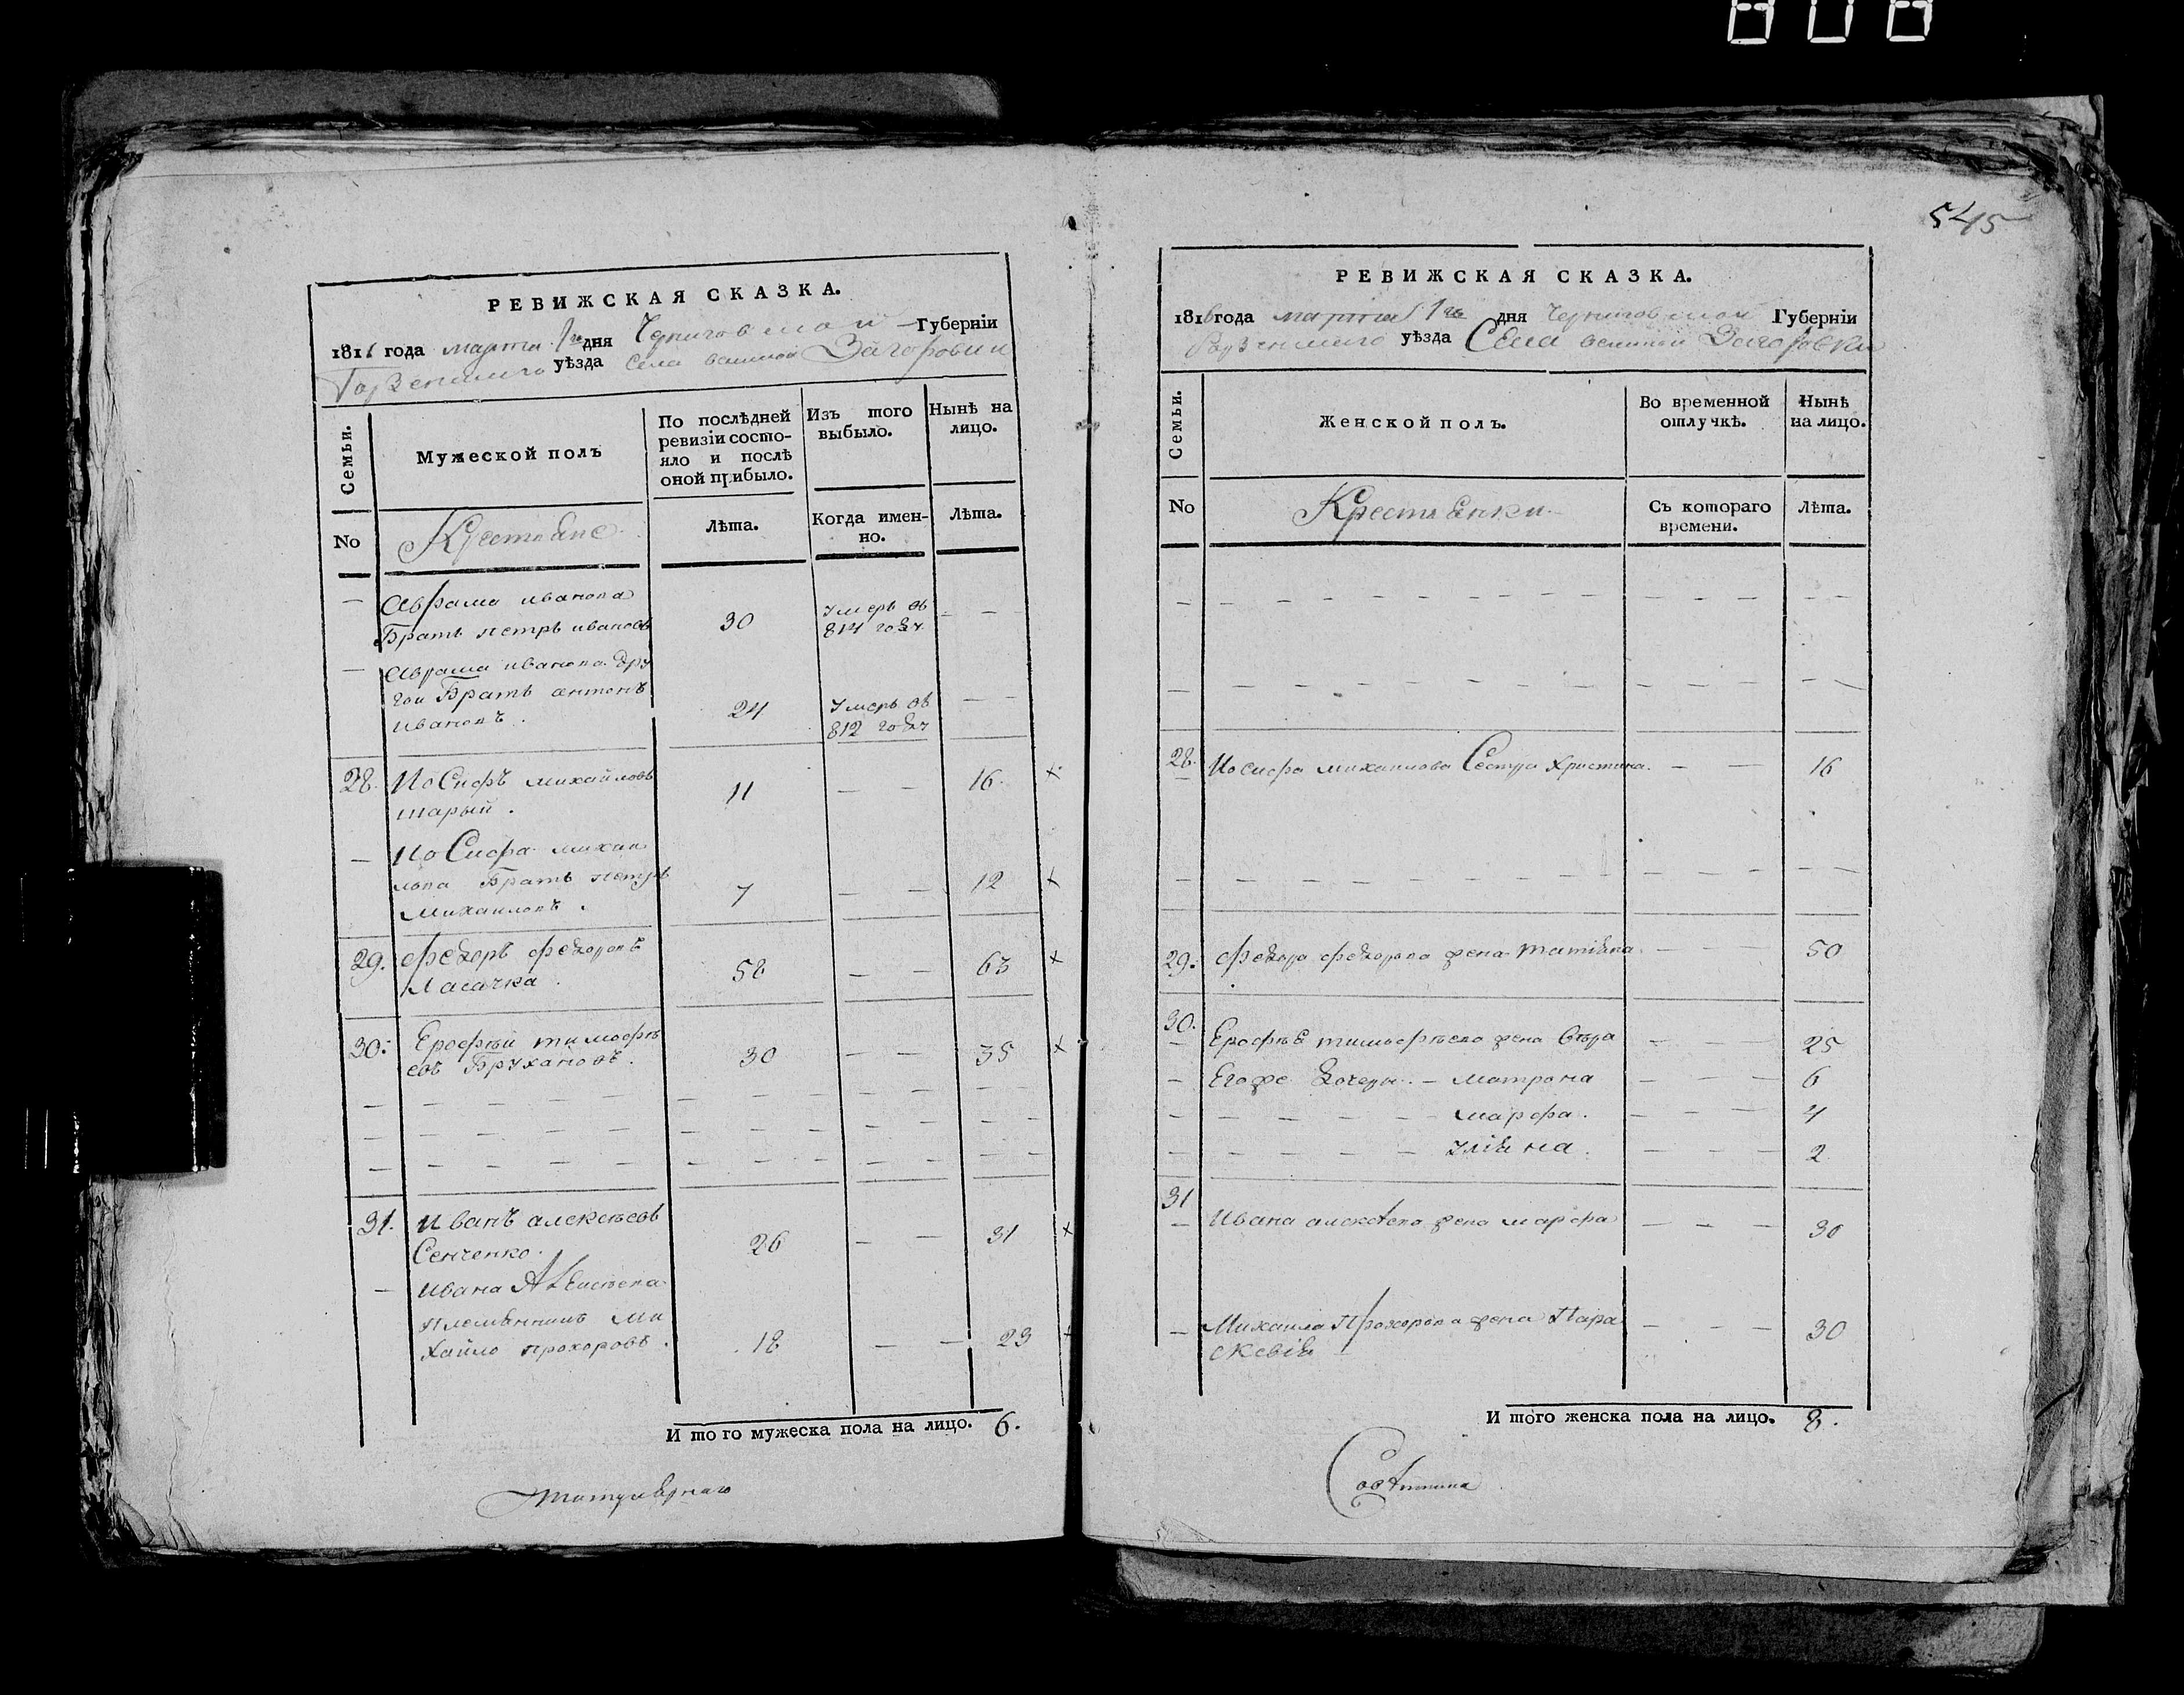 808
545
РЕВИЖСКАЯ СКАЗКА.
1816 года марта 1го дня Черниговской Губернїи
Борзенского уѣзда Села великой Загоровки
Семьи.
Мужеской полъ
По послѣдней ревизїи состояло и послѣ оной прибыло.
Изъ того выбыло.
Нынѣ на лицо.
No
Крестьяне
Лѣта.
Когда именно.
Лѣта.
— Аврама иванова
Братъ петръ ивановъ 30 умеръ въ 814 году — —
— Аврама иванова дру
гой Братъ антонъ
ивановъ. 24 умеръ въ 812 году — —
28. Иосифъ михайловъ
старый. 11 — — 16. ×
— Иосифа михаи
лова Братъ петръ
михаиловъ. 7 — — 12 ×
29. федоръ федоровъ
Ласачка. 58 — — 63 ×
30. Ерофѣй тимофѣ
евъ Брухановъ. 30 — — 35 ×
31. Иванъ алексѣевъ
Сенченко. 26 — — 31 ×
— Ивана Алексѣева
племянникъ Ми
хайло прохоровъ. 18 — — 23
И того мужеска пола на лицо. 6.
титулярнаго
РЕВИЖСКАЯ СКАЗКА.
1816 года марта 1го дня Черниговской Губернїи
Борзенского уѣзда Села великой Загоровки
Семьи.
Женской полъ.
Во временной отлучкѣ.
Нынѣ на лицо.
No
Крестьянки
Съ котораго времени.
Лѣта.
28. Иосифа михаилова Сестра Христина. — — 16
29. федора федорова жена татіяна — — 50
30. Ерофѣя тимофѣева жена вѣра — — 25
— Егоже дочери. — матрона — — 6
марфа. — — 4
уліяна. — — 2
31 Ивана алексѣева жена марфа — — 30
— Михаила Прохорова жена Пара
скевія — — 30
И того женска пола на лицо. 8.
Совѣтника